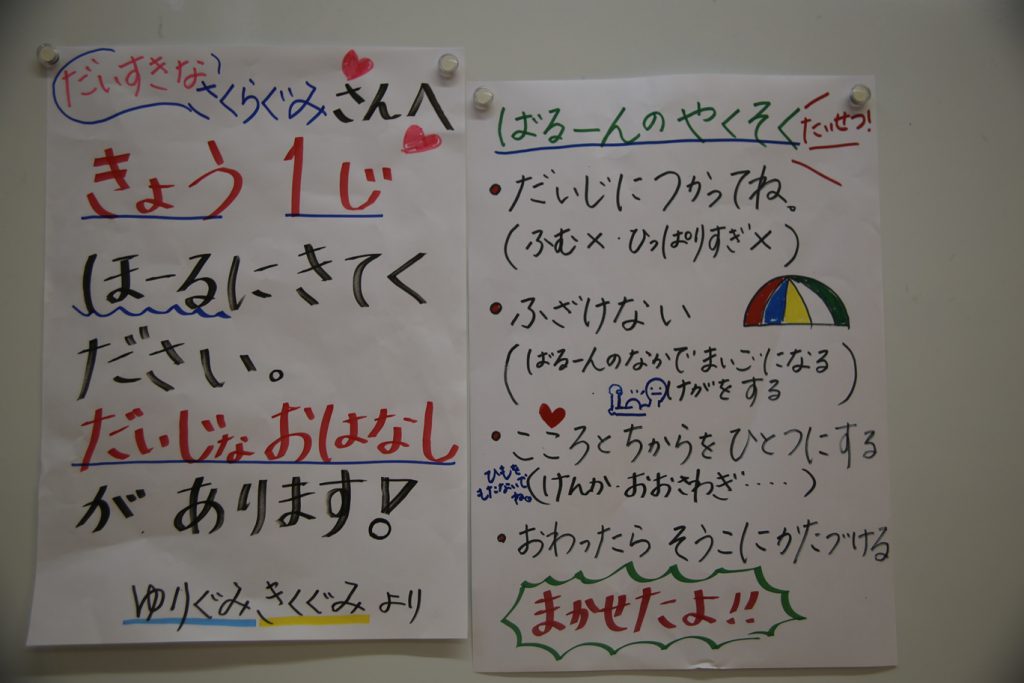 だいすきな さくらぐみさんへ
きょう 1じ
ほーるにきてく
ださい。
だいじなおはなし
が あります!
ゆりぐみ きくぐみ より
ばるーんの やくそく たいせつ!
・だいじに つかってね。
(ふむ×・ひっぱりすぎ×)
・ふざけない
(ばるーんのなかで まいごになる
けがをする)
・こころとちからを ひとつにする
ひもを
もたないで
ね。
(けんか・おおさわぎ・・・・)
・おわったら そうこにかたづける
まかせたよ!!